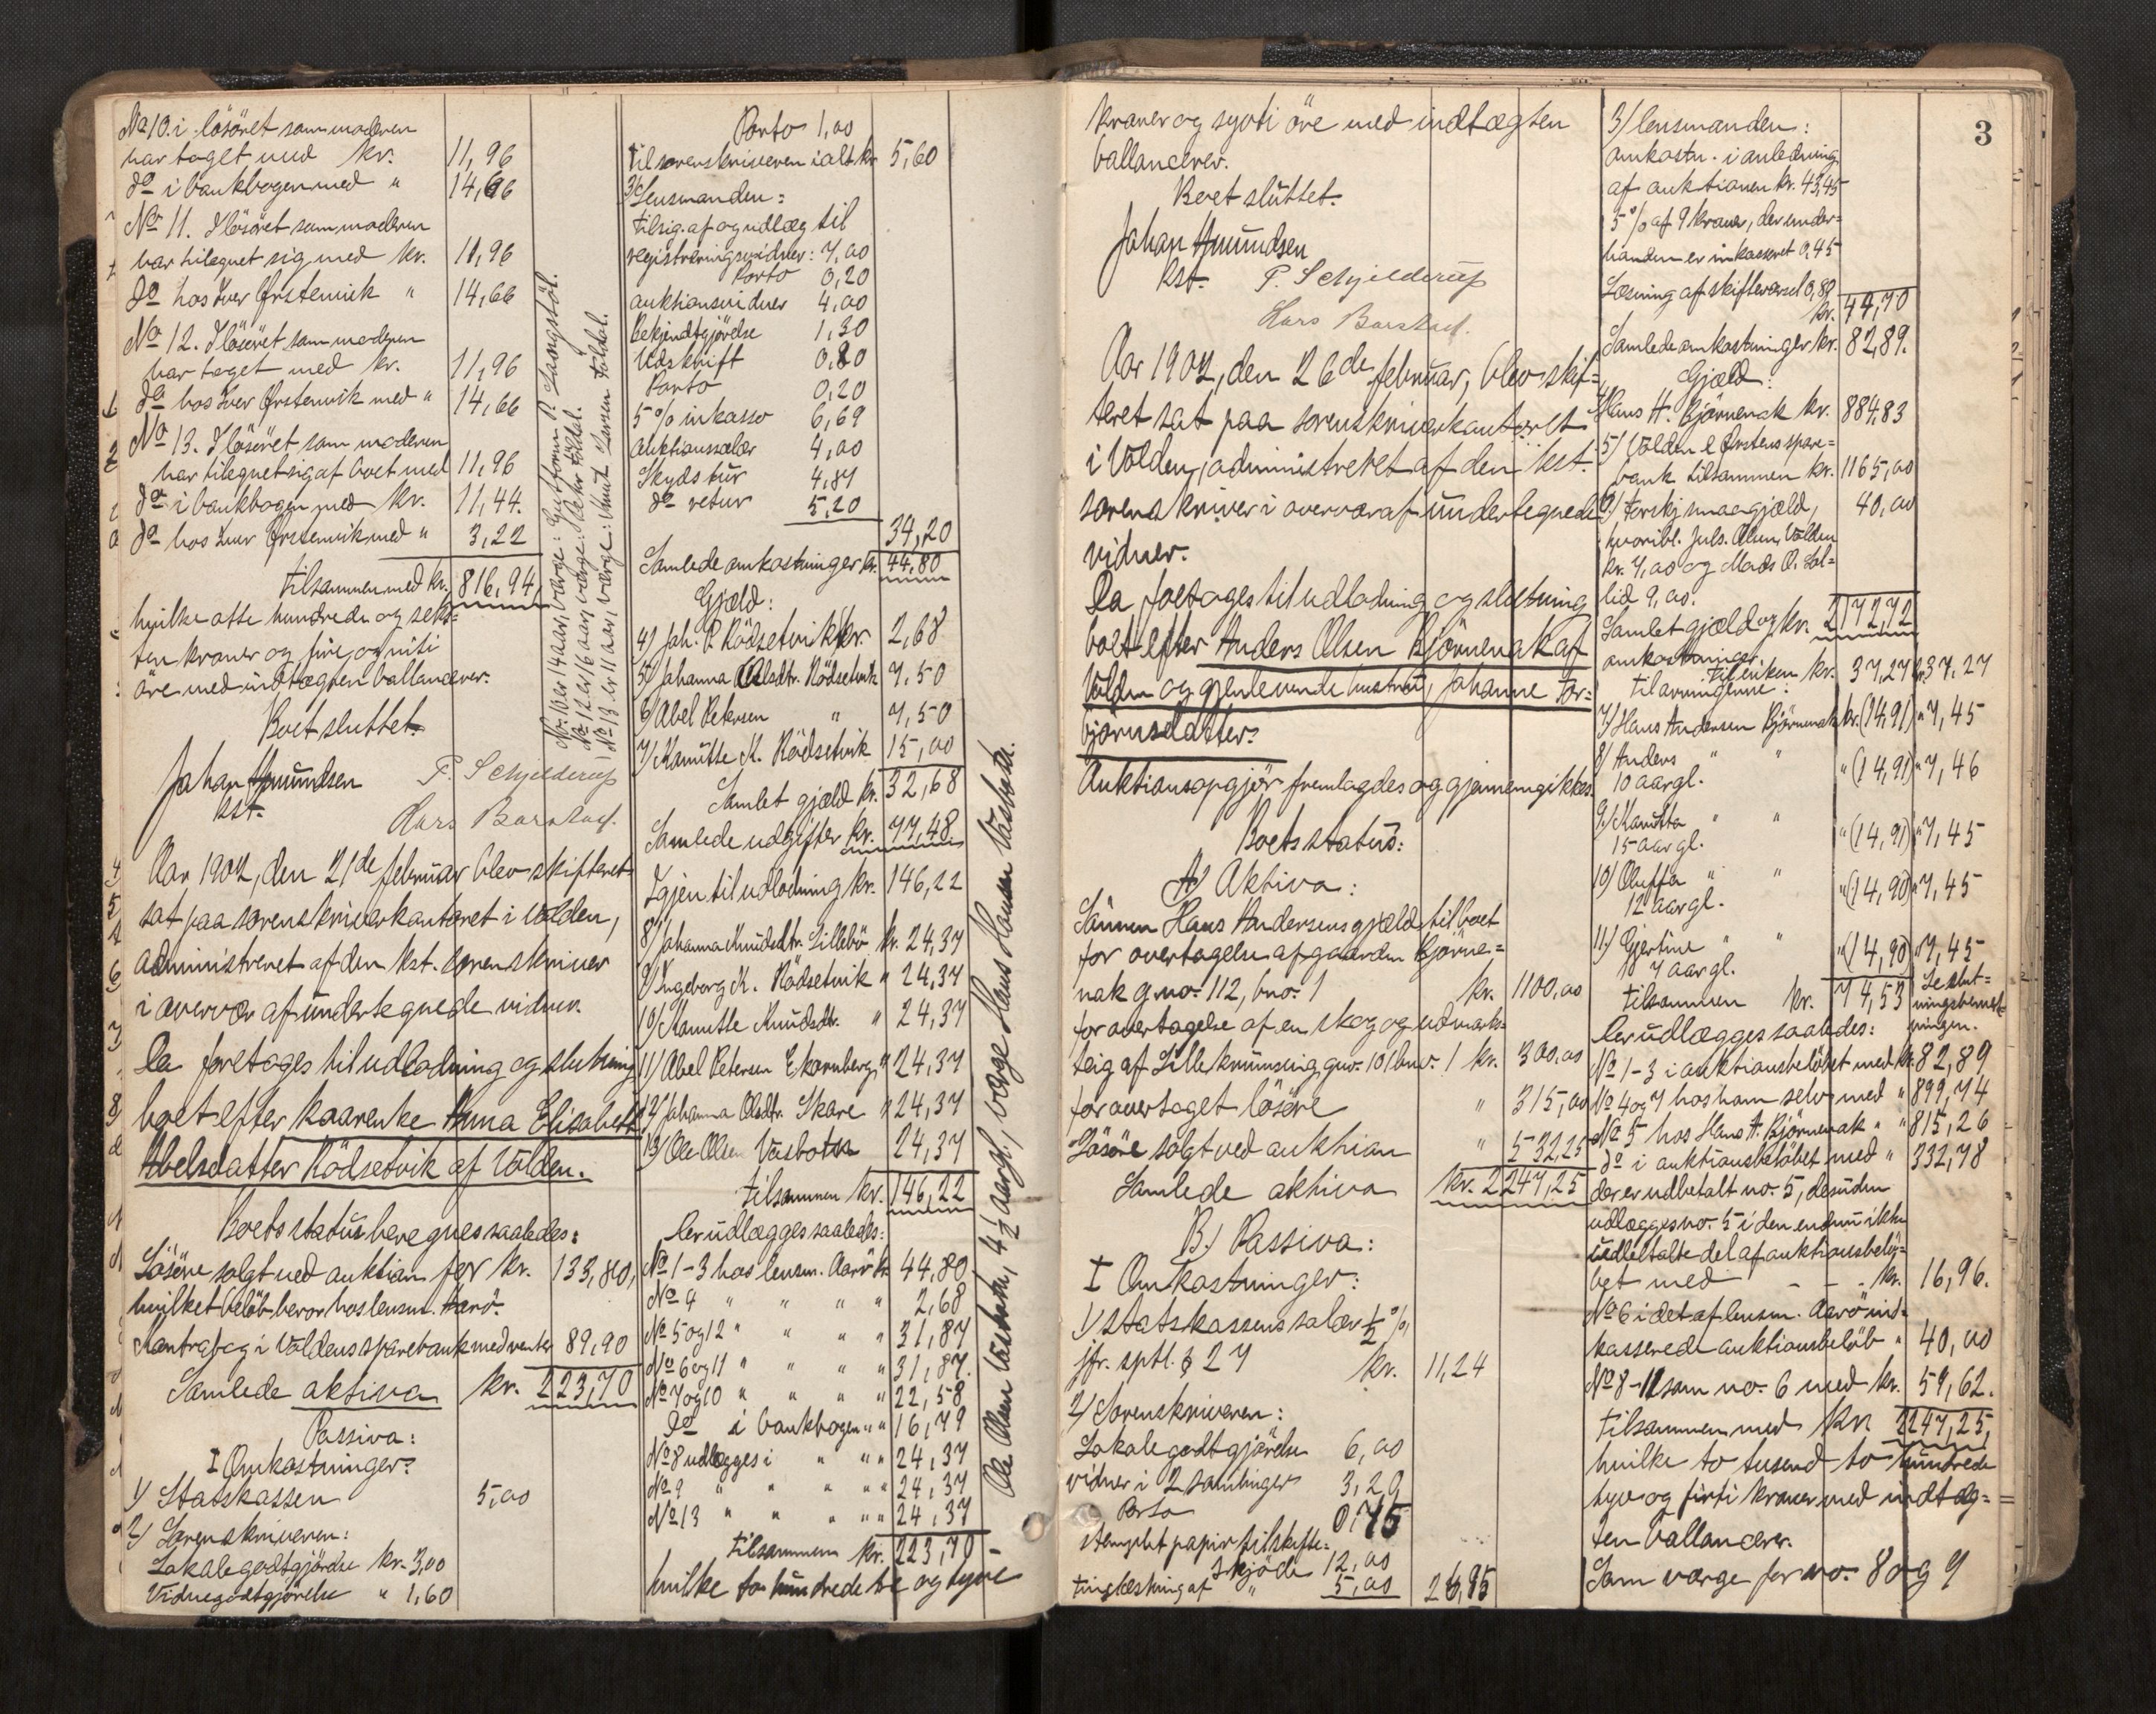 No 10. i lösöret som moderen
har taget med kr. 11,96
do i bankbogen med " 14,66
No 11. I lösöret som moderen
har tilegnet sig med kr. 11,96
do hos Iver Ørstenvik " 14,66
No 12. I lösöret som moderen
har taget med kr. 11,96
do hos Iver Ørstenvik med " 14,66
No 13. I lösöret som moderen
har tilegnet sig af boet med 11,96
do i bankbogen med kr. 11,44.
do hos Iver Ørstenvik med " 3,22
tilsammen med kr. 816,94,
hvilke otte hundrede og seks=
ten kroner og fire og niti
öre med indtægten ballancerer.
Boet sluttet.
Johan Amundsen
kst.
P. Schjelderup
Hans Barstad.
No. 10 er 14 aar, værge: Guttorm P. Laangstöl.
No. 12 er 16 aar, værge: Peter Földal.
No 13 er 11 aar, værge: Knut Larsen Földal.
Aar 1907, den 21de februar blev skifteret
sat paa sorenskriverkontoret i Volden,
administreret af den kst. sorenskriver
i overvær af undertegnede vidner.
Da foretoges til udlodning og slutning
boet efter kaarenke Anna Elisabeth
Abelsdatter Rödsetvik af Volden.
Boets status beregnes saaledes:
Lösöre solgt ved auktion for kr. 133,80,
hvilket belöb beror hos lensm. Aarö.
Kontrabog i Voldens sparebank med renter 89,90
Samlede aktiva kr. 223,70
Passiva:
I Omkostninger:
1) Statskassen 5,00
2) Sorenskriveren:
Lokalegodtgjörelse kr. 3,00
Vidnegodtgjörelse " 1,60
Porto 1,00
til sorenskriveren ialt kr. 5,60
3) Lensmanden:
tilsig. af og udlæg til
registreringsvidner: 7,00
Porto 0,20
auktionsvidner 4,00
bekjendtgjörelse 1,30
Udskrift 0,80
Porto 0,20
5 % inkasso 6,69
auktionssalær 4,00
Skyds tur 4,81
do retur 5,20
34,20
Samlede omkostninger kr. 44,80
Gjæld:
4) Joh. P. Rödsetvik kr. 2,68
5) Johanna Olsdtr. Rödsetvik 7,50
6) Abel Petersen " 7,50
7) Kanutte K. Rödsetvik 15,00
Samlet gjæld kr. 32,68
Samlede udgifter kr. 77,48.
Igjen til udlodning kr. 146,22
8) Johanna Knudsdtr. Lillebö kr. 24,37
9) Ingeborg K. Rödsetvik " 24,37
10) Kanutte Knudsdtr. " 24,37
11) Abel Petersen Ekornberg " 24,37
12) Johanna Olsdtr. Skare " 24,37
13) Ole Olsen Vasbotn 24,37
tilsammen kr. 146,22
der udlægges saaledes:
No 1-3 hos lensm. Aarö kr. 44,80
No 4 " " " " 2,68
No 5 og 12 " " " " 31,87
No 6 og 11 " " " " 31,87.
No 7 og 10 " " " " 22,58
do i bankbogen " " 16,79
No 8 udlægges i " " " 24,37
No 9 " " " " 24,37
No 13 " " " " 24,37
tilsammen kr. 223,70 -
hvilke to hundrede tre og tyve
Ole Olsen Vasbotn, 4½ aargl., værge Hans Hansen Vasbotn.
3
kroner og syoti öre med indtægten
ballancerer.
Boet sluttet.
Johan Amundsen
kst.
P. Schjelderup
Hans Barstad.
Aar 1907, den 26de februar, blev skif=
teret sat paa sorenskriverkontoret
i Volden, administreret af den kst.
sorenskriver i overvær af undertegnede
vidner.
Da foretoges til udlodning og slutning
boet efter Anders Olsen Björnenak af
Volden og gjenlevende hustru, Johanne Tor=
björnsdatter.
Auktionsopgjör fremlagdes og gjennemgikkes.
Boets status:
A) Aktiva:
Sönnen Hans Andersens gjæld til boet
for overtagelse af gaarden Björne=
nak g.no. 112, b.no. 1 kr. 1100,00
for overtagelse af en skog og udmarks=
teig af Lille gno. 101 bno. 1 kr. 300,00
for overtaget lösöre " 315,00
Lösöre solgt ved auktion " 532,25
Samlede aktiva kr. 2247,25
B.) Passiva:
I Omkostninger:
1) Statskassens salær ½ %,
jfr. sptl. § 27 kr. 11,24
2) Sorenskriveren:
Lokalegodtgjörelse 6,00
vidner i 2 samlinger 3,20
Porto 0,75
stemplet papir til skifte=
skjöde 12,00
tinglæsning af " 5,00 26,95
3) lensmanden:
omkostn. i anledning
af auktionen kr. 43,45
5 % af 9 kroner, der under=
haanden er inkasseret 0,45
Læsning af skiftevarsel 0,80
kr. 44,70
Samlede omkostninger kr. 82,89.
Gjæld:
4) Hans H. Björnenak kr. 884,83
5) Volden & Ørstens spare=
bank tilsammen kr. 1165,00
6) Forskj. smaagjæld, 40,00
hvoribl. Juls. Aam, Volden
kr. 7,00 og Mads O. Lol=
lid 9,00.
Samlet gjæld og kr. 2172,72
omkostninger
til enken kr. 37,27 kr. 37,27
til arvingerne:
7) Hans Andersen Björnenak kr. (14,91) " 7,45
8) Anders " " " (14,91) " 7,46
10 aar gl.
9) Kanutta " " " (14,91) " 7,45
15 aar gl.
10) Oluffa " " " (14,90) " 7,45
12 aar gl.
11) Gjertine " " " (14,90) " 7,45
7 aar gl.
tilsammen kr. 74,53
Se slut=
ningsbemerk=
ningen.
der udlægges saaledes:
No 1-3 i auktionsbelöbet med kr. 82,89
No 4 og 7 hos ham selv med " 899,74
No 5 hos Hans A. Björnenak " " 815,26
do i auktionsbelöbet med " 332,78
der er udbetalt no. 5, desuden
udlægges no. 5 i den endnu ikke
udbetalte del af auktionsbelö=
bet med - - - kr. 16,96.
No 6 i det af lensm. Aarö ind=
kasserede auktionsbelöb " 40,00
No 8-11 som no. 6 med kr. 59,62.
tilsammen med kr. 2247,25,
hvilke to tusend to hundrede
syv og firti kroner med indtæg=
ten ballancerer.
Som værge for no. 8 og 9